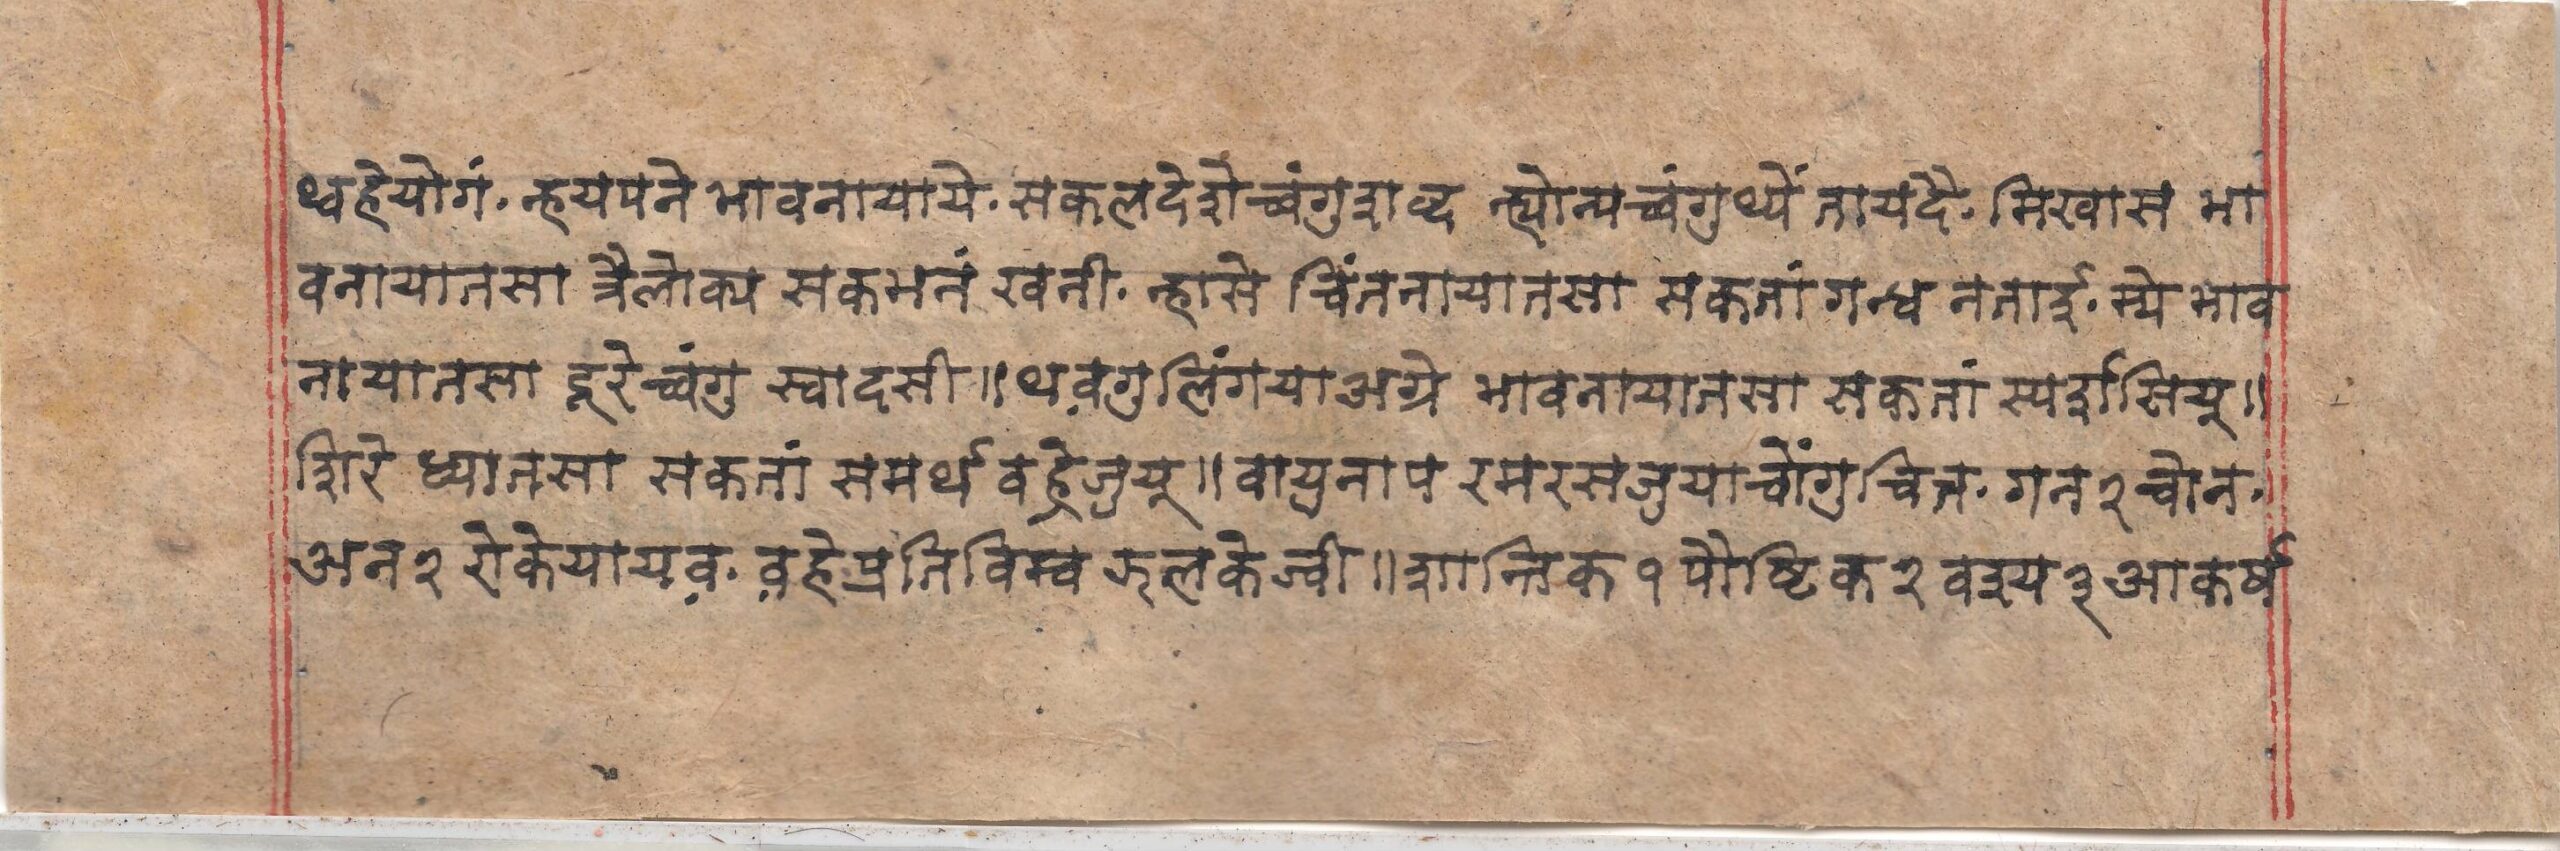 थ्वहेयोगं॰ न्हयपने भावनायाये॰ सकलदेशेच्वंगुशब्द न्ह्योन्यच्वंगुथ्यें तायदै॰ मिखास भा
वनायातसा त्रैलोक्य सकभनं खनी॰ न्हासे चिंतनायातसा सकतां गन्ध नताई॰ म्ये भाव
नायातसा दूरेच्वंगु स्वादसी॥ थव़गुलिंगयाअग्रे भावनायातसा सकतां स्पर्शसियू॥
शिरे ध्यातसा सकतां समर्थ वह्रेजुयू॥ वायुनाप रमरसजुयाचोंगुचित्त॰ गन२चोन॰
अन२ रोकेयायव़॰ व़हेप्रतिविम्ब झलकेज्वी॥ शान्तिक१ पौष्टिक२ वश्य३ आकर्ष